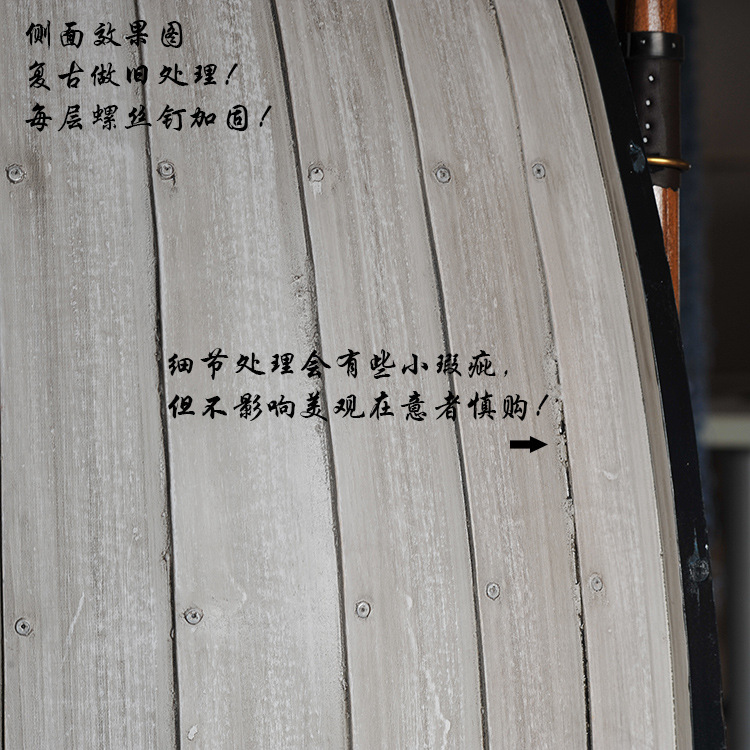 侧面效果图
复古做旧处理！
每层螺丝钉加固！
细节处理会有些小瑕疵，
但不影响美观在意者慎购！